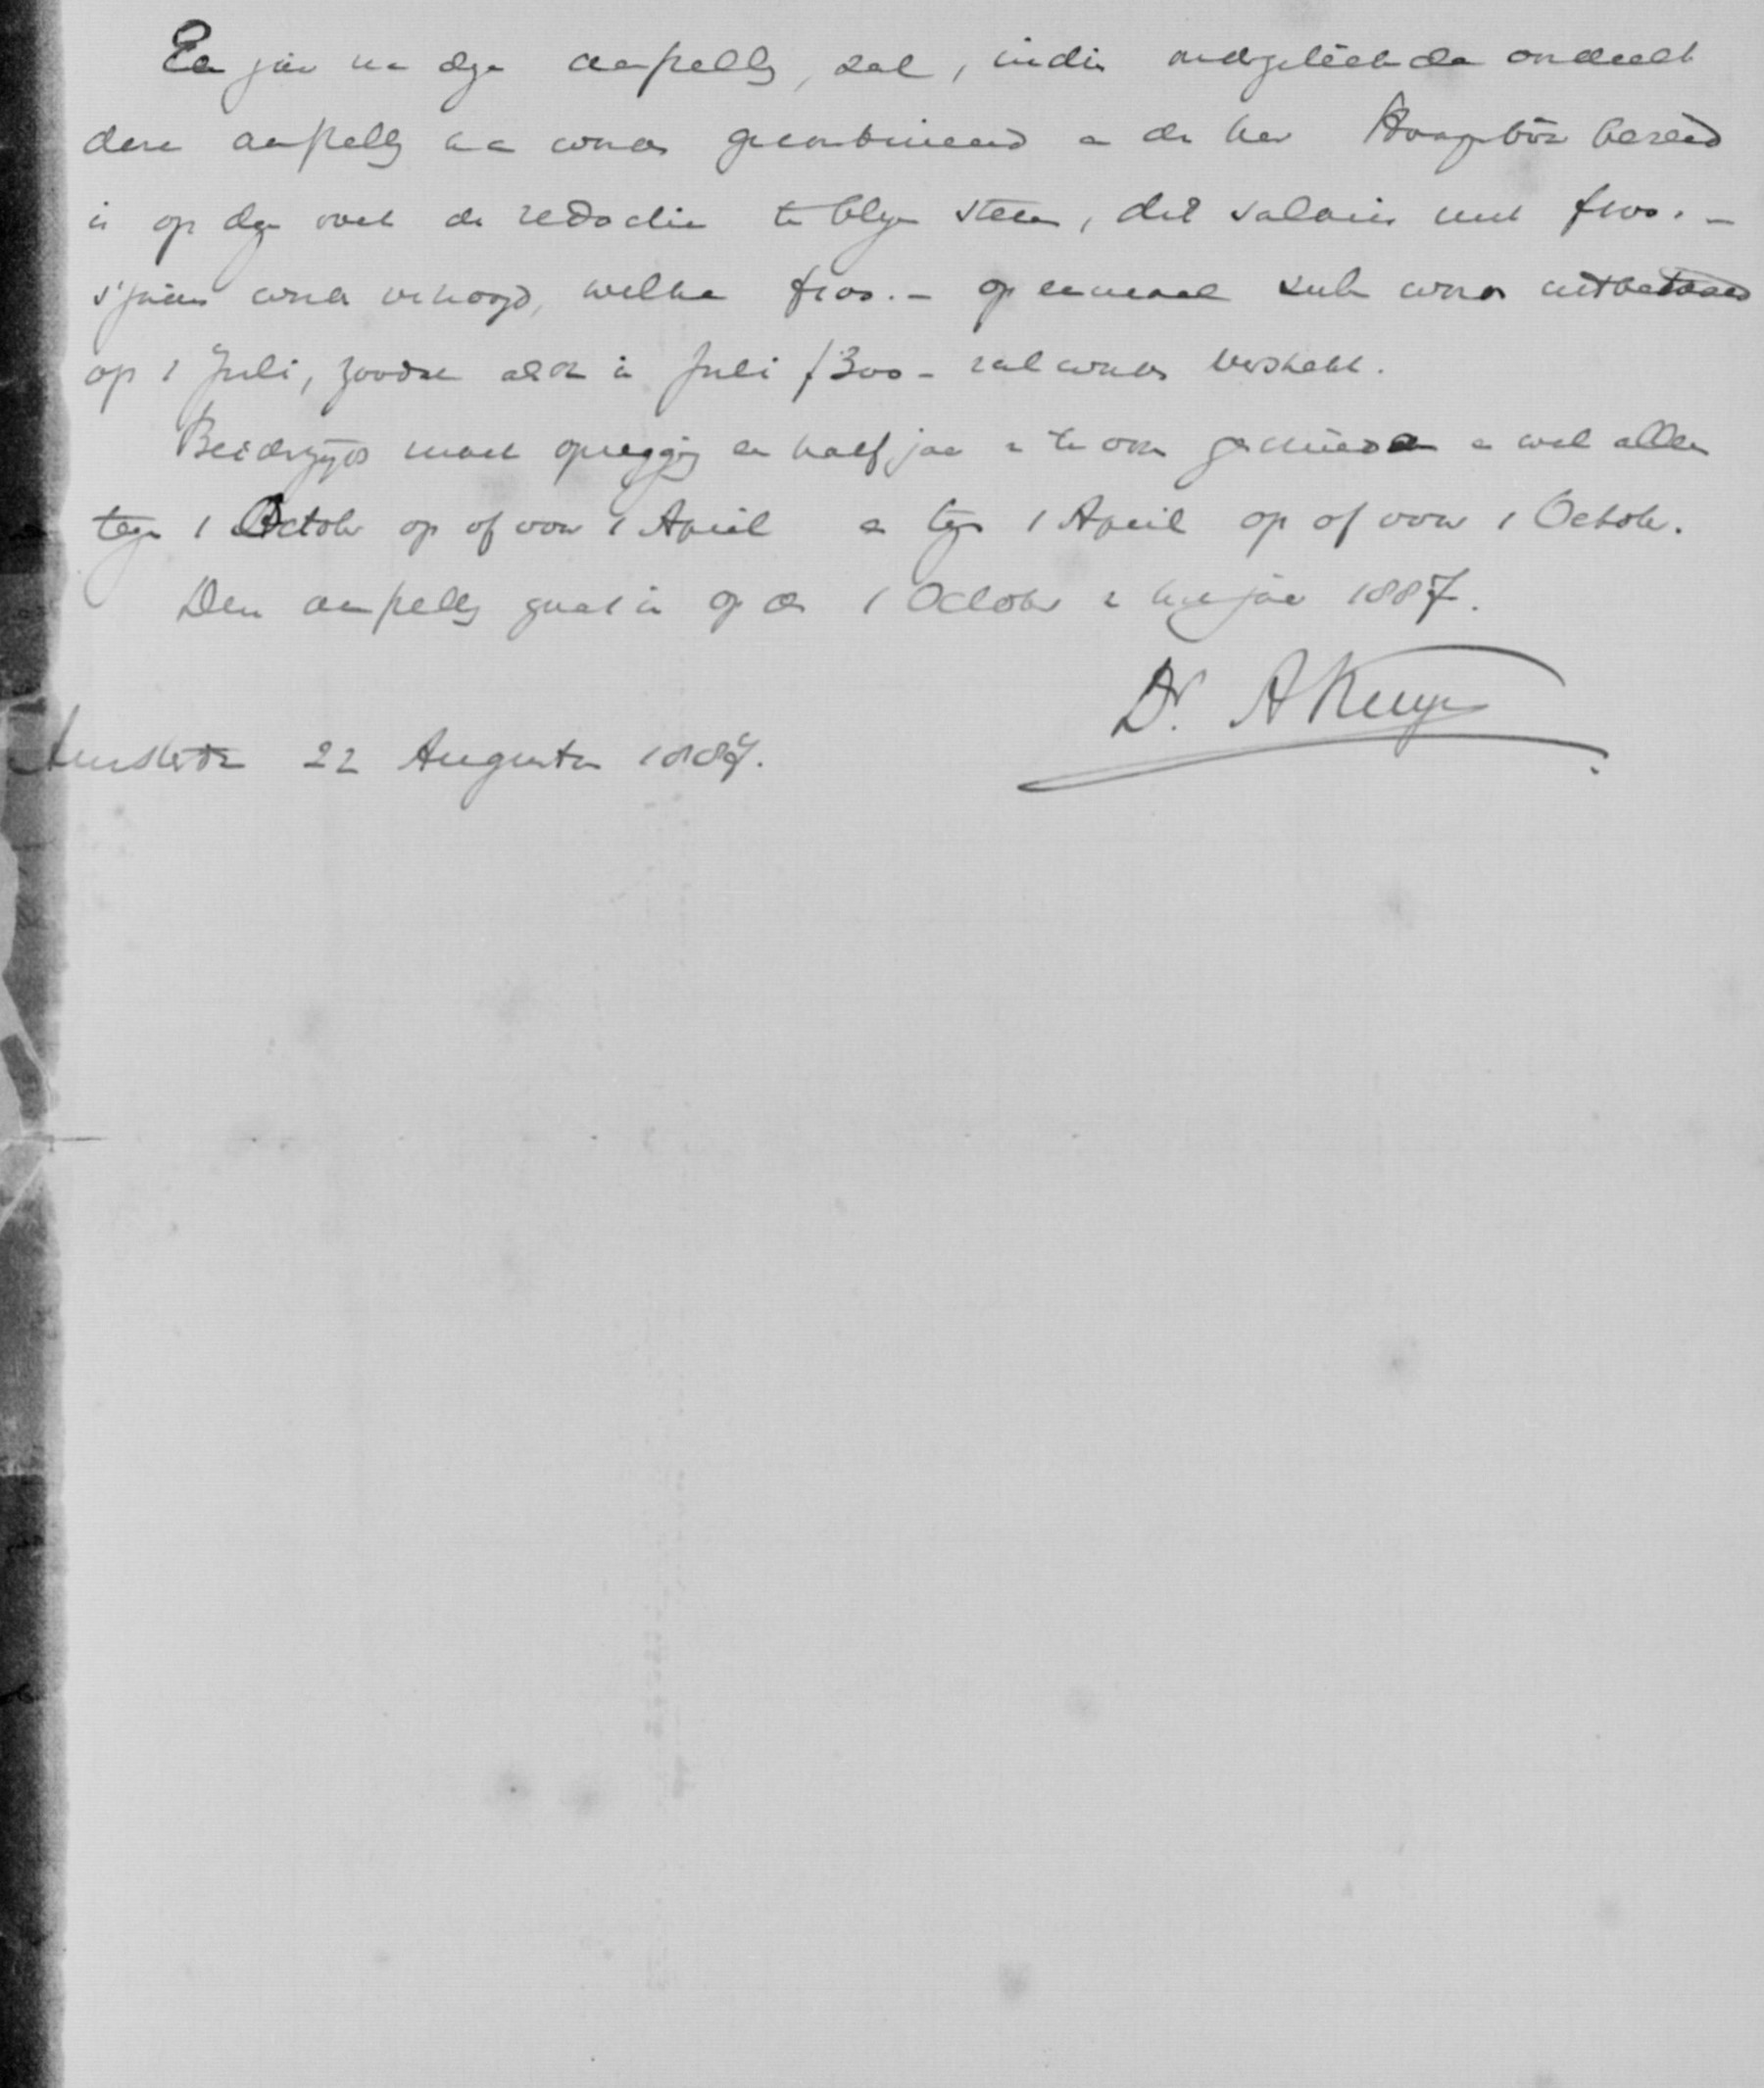 Een jaar na deze aanstelling, zal, indien ondergeteekende oordeelt
deze aanstelling kan worden gecontinueerd en de heer bereid
is op den voet der redactie te blijven staan, dit salaris met f100.-
's jaars worden verhoogd, welke f100.- op eenmaal zulk worden uitbetaald
op 1 Juli, zoodat alsdan in Juli f300- zal worden verstrekt.
Beiderzijds moet opzegging een half jaar te voren geschieden en wel alleen
tegen 1 October op of voor 1 April en tegen 1 April op of voor 1 October.
Deze aanstelling gaat in op den 1 October van het jaar 1887.
Dr. A Kuyper
Amsterdam 22 Augustus 1887.